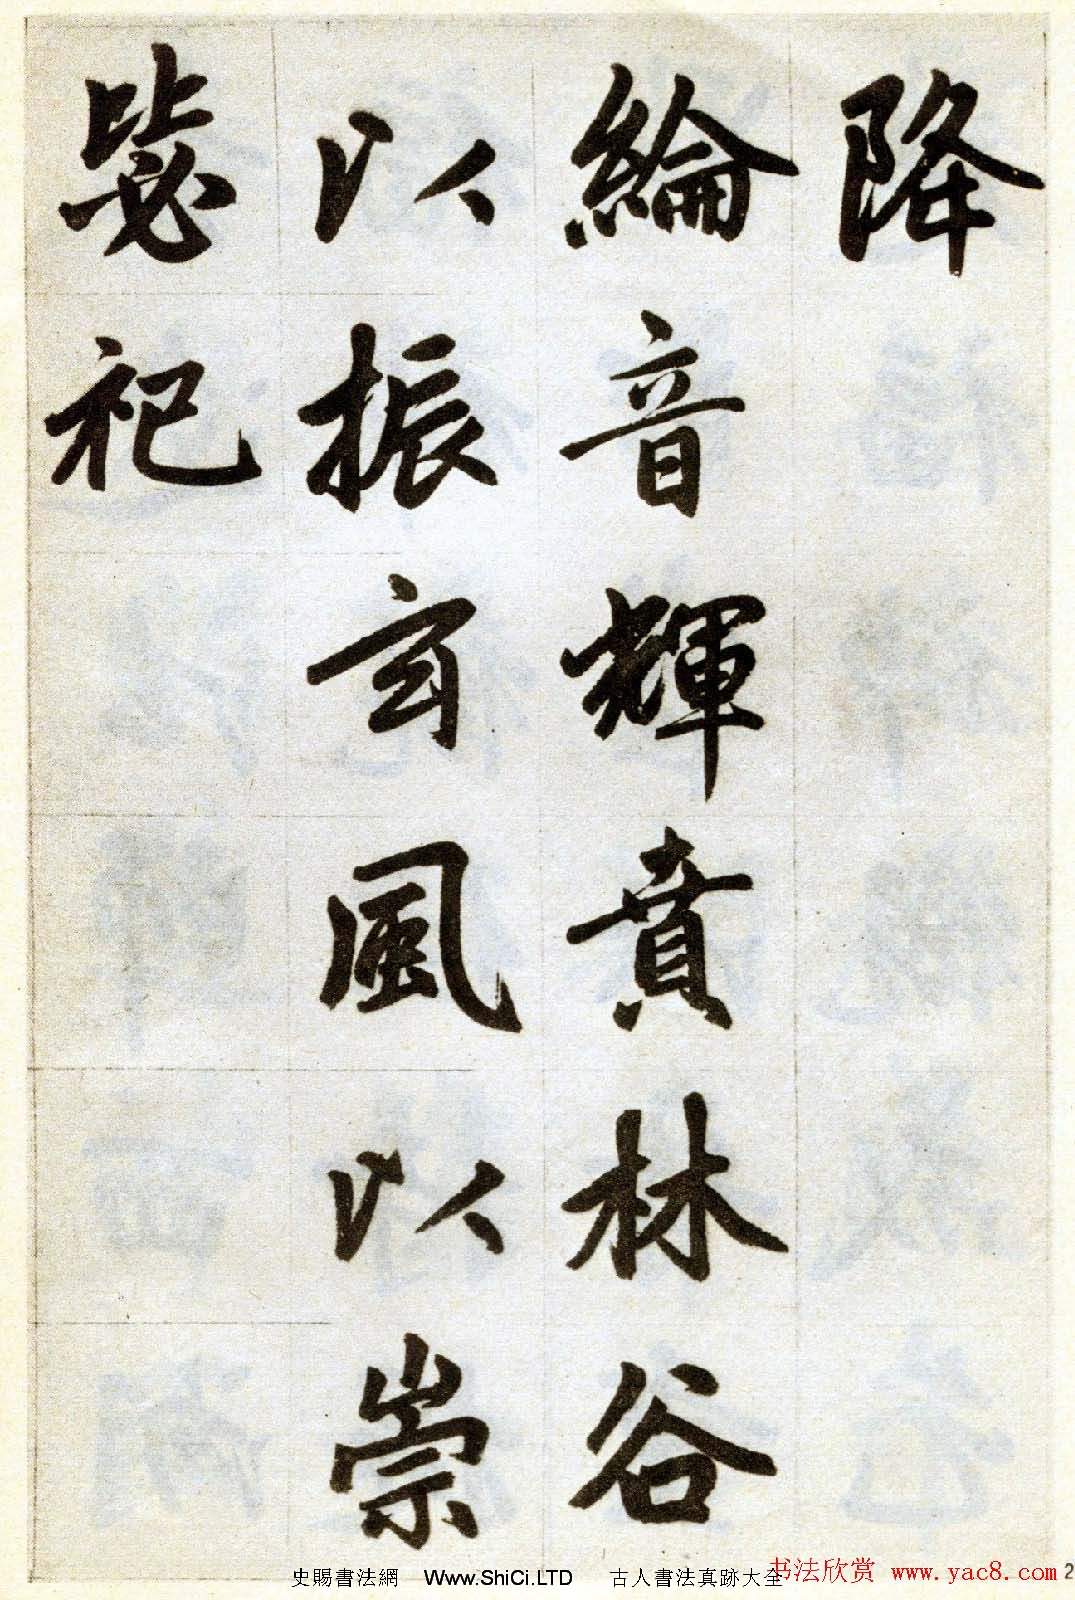 降
綸音輝賁林谷
以振玄風以崇
毖祀
史賜書法網 Www.ShiCi.LTD 古人書法真跡大全
书法欣赏 www.yac8.com 2